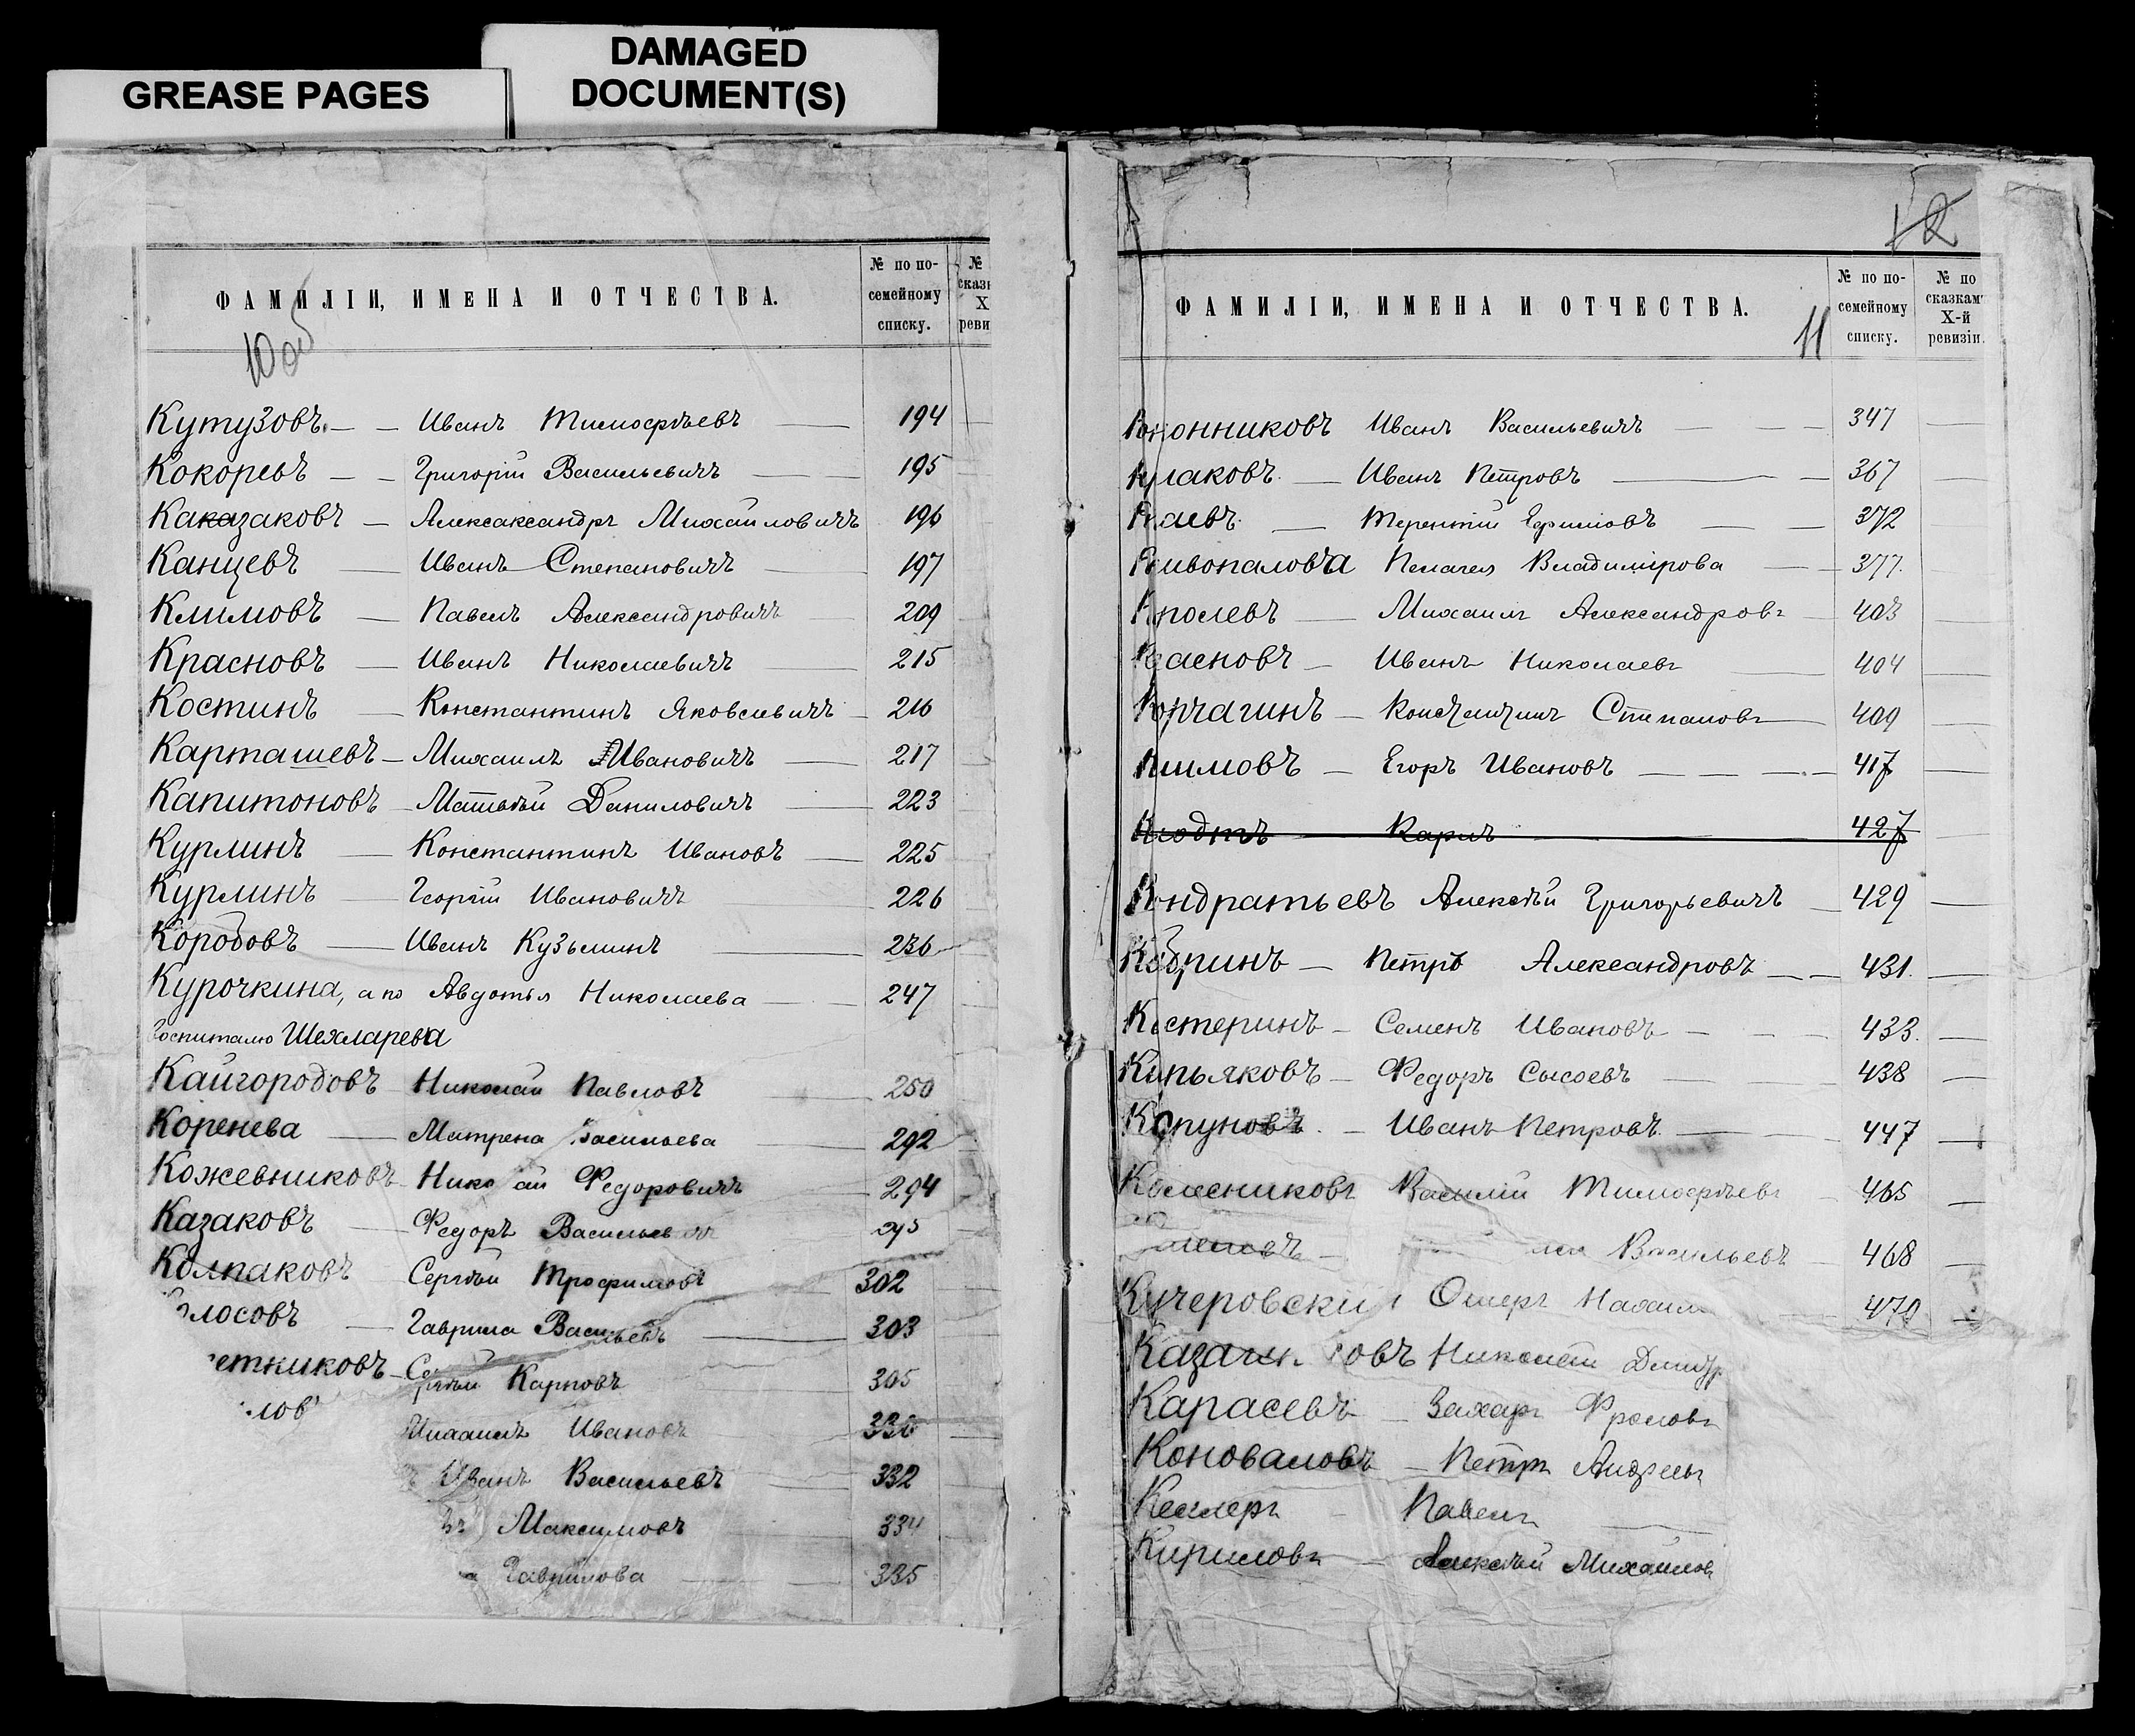 DAMAGED
DOCUMENT(S)
GREASE PAGES
ФАМИЛІИ, ИМЕНА И ОТЧЕСТВА.
№ по по-
семейному
списку.
№
сказк
X
реви
10 об
Кутузовъ. — — Иванъ Тимофѣевъ — 194
Кокоревъ — — Григорій Васильевичъ — 195
Каказаковъ — Алексаксандръ Михайловичъ 196
Канцевъ — Иванъ Степановичъ — 197
Климовъ — Павелъ Александровичъ — 209
Красновъ — Иванъ Николаевичъ — 215
Костинъ — Константинъ Яковлевичъ — 216
Карташевъ — Михаилъ Ивановичъ — 217
Капитоновъ — Матвѣй Даниловичъ — 223
Курлинъ — Константинъ Ивановъ — 225
Курлинъ — Георгій Ивановичъ 226
Коробовъ — Иванъ Кузьминъ — 236
Курочкина, а по Авдотья Николаева — 247
воспиталю Шехларева
Кайгородовъ Николай Павловъ — 250
Коренева — Матрена Васильева — 292
Кожевниковъ Нико ай Федоровичъ — 294
Казаковъ — Федоръ Василье 295
Колпаковъ Сергѣй Трофимовъ — 302
лосовъ — Гаврила Васильевъ — 303
етниковъ — Сергѣй Карповъ — 305
лов
Михаилъ Ивановъ 330
Иванъ Васильевъ — 332
Максимовъ 334
Гаврилова — 335
12
ФАМИЛІИ, ИМЕНА И ОТЧЕСТВА.
11
№ по по-
семейному
списку.
№ по
сказкам
X-й
ревизіи.
Кононниковъ Иванъ Васильевичъ — 347
Кулаковъ. — Иванъ Петровъ — 367
Терентій Ефимовъ — 372
Кривопалова Пелагея Владимірова — 377.
Королевъ — Михаилъ Александровъ — 403
Красновъ — Иванъ Николаевъ — 404
Корчагинъ — Константинъ Степановъ — 409
Климовъ — Егоръ Ивановъ — — — 417
Клодтъ — Карлъ — 427
Кондратьевъ Алексѣй Григорьевичъ — 429
Кобринъ — Петръ Александровъ — — 431.
Костеринъ — Семенъ Ивановъ — — 433.
Кирьяковъ — Федоръ Сысоевъ — — 438
Копуновъ. — Иванъ Петровъ. — — 447
Колесниковъ Василій Тимофѣевъ — 465
Васильевъ — 468
Кучеровскій Ошеръ Нахим 470
Каза овъ Николай Дмитр
Карасевъ — Захаръ Фроловъ
Коноваловъ — Петръ Андреевъ
Кеслеръ — Павелъ
Кириловъ — Алексѣй Михайлов